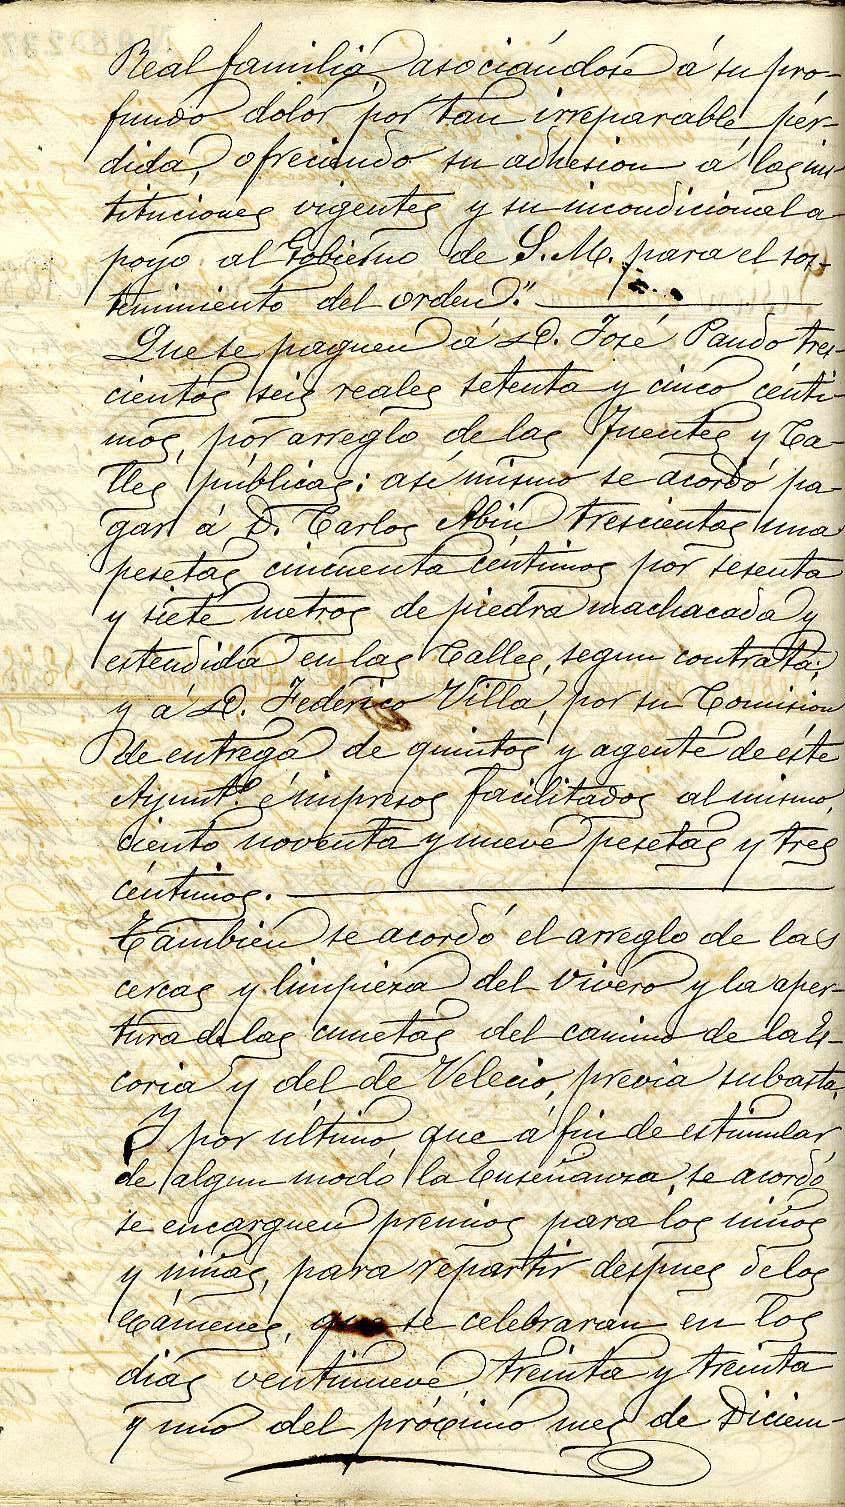 Real familia asociándose á su pro-
fundo dolor por tan irreparable pér-
dida, ofreciendo su adhesion á las ins
tituciones vigentes y su incondicional a-
poyo al Gobierno de S. M. para el sos-
tenimiento del orden."
Que se paguen á D. José Pando tres-
cientos seis reales setenta y cinco cénti-
mos, por arreglo de las Fuentes y Ca-
lles públicas; así mismo se acordó pa-
gar á D. Carlos Abin trescientas una
pesetas cincuenta céntimos por sesenta
y siete metros de piedra machacada y
estendida en las Calles, segun contrata;
y á D. Federico Villa, por su Comision
de entrega de quintos y agente de éste
Ayuntº. é impresos facilitados al mismo,
ciento noventa y nueve pesetas y tres
céntimos.
Tambien se acordó el arreglo de las
cercas y limpieza del Vivero y la aper-
tura de las cunetas del camino de la Es-
coria y del de Velecio, previa subasta.
Y por último, que á fin de estimular
de algun modo la Enseñanza, se acordó
se encarguen premios para los niños
y niñas, para repartir despues de los
Exámenes, que se celebraran en los
dias ventinueve, treinta y treinta
y uno del próximo mes de Diciem-